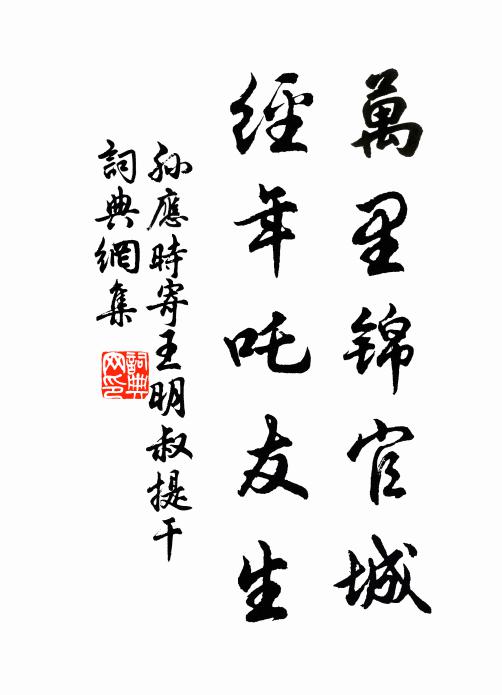 萬里锦官城
經年吒友生
孫應時寄王明叔提干
詞典網集
詞典網印